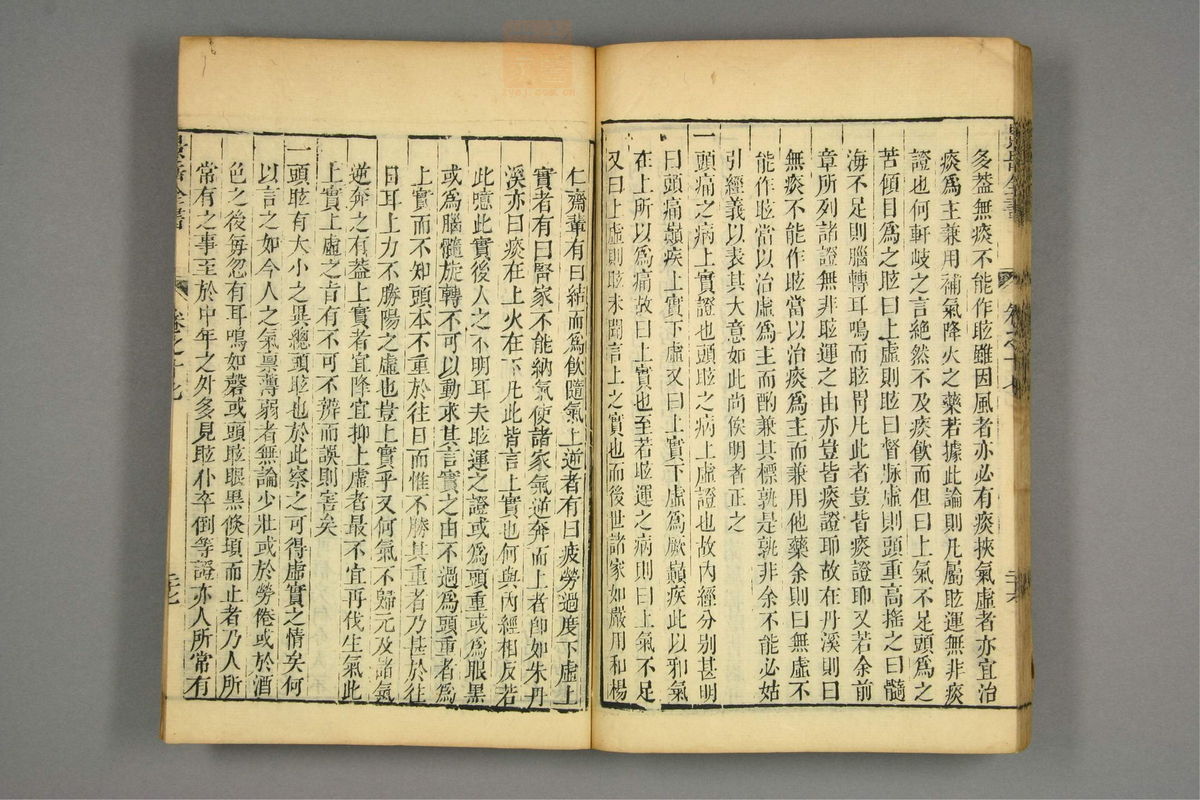 多蓋無痰不能作眩雖因風者亦必有痰挾氣虛者亦宜治
痰爲主兼用補氣降火之藥若據此論則凡屬眩運無非痰
證也何軒岐之言絕然不及痰飲而但曰上氣不足頭爲之
苦傾目爲之眩曰上虛則眩曰督脉虛則頭重高搖之曰髓
海不足則腦轉耳鳴而眩冒凡此者豈皆痰證耶又若余前
章所列諸證無非眩運之由亦豈皆痰證耶故在丹溪則曰
無痰不能作眩當以治痰爲主而兼用他藥余則曰無虛不
能作眩當以治虛爲主而酌兼其標孰是孰非余不能必姑
引經義以表其大意如此尚俟明者正之
一頭痛之病上實證也頭眩之病上虛證也故內經分别甚明
曰頭痛巔疾上實下虛又曰上實下虛爲厥巔疾此以邪氣
在上所以爲痛故曰上實也至若眩運之病則曰上氣不足
又曰上虛則眩未聞言上之實也而後世諸家如嚴用和楊
仁齋輩有曰結而爲飲隨氣上逆者有曰疲勞過度下虛上
實者有曰腎家不能納氣使諸家氣逆奔而上者卽如朱丹
溪亦曰痰在上火在下凡此皆言上實也何與內經相反若
此噫此實後人之不明耳夫眩運之證或爲頭重或爲眼黑
或爲腦髓旋轉不可以動求其言實之由不過爲頭重者爲
上實而不知頭本不重於往日而惟不勝其重者乃甚於往
日耳上力不勝陽之虛也豈上實乎又何氣不歸元及諸氣
逆奔之有蓋上實者宜降宜抑上虛者最不宜再伐生氣此
上實上虛之旨有不可不辨而誤則害矣
一頭眩有大小之異總頭眩也於此察之可得虛實之情矣何
以言之如今人之氣稟薄弱者無論少壯或於勞倦或於酒
色之後每忽有耳鳴如磬或頭眩眼黑倐頃而止者乃人所
常有之事至於中年之外多見眩仆卒倒等證亦人所常有
景岳全書
卷之十七
二十七